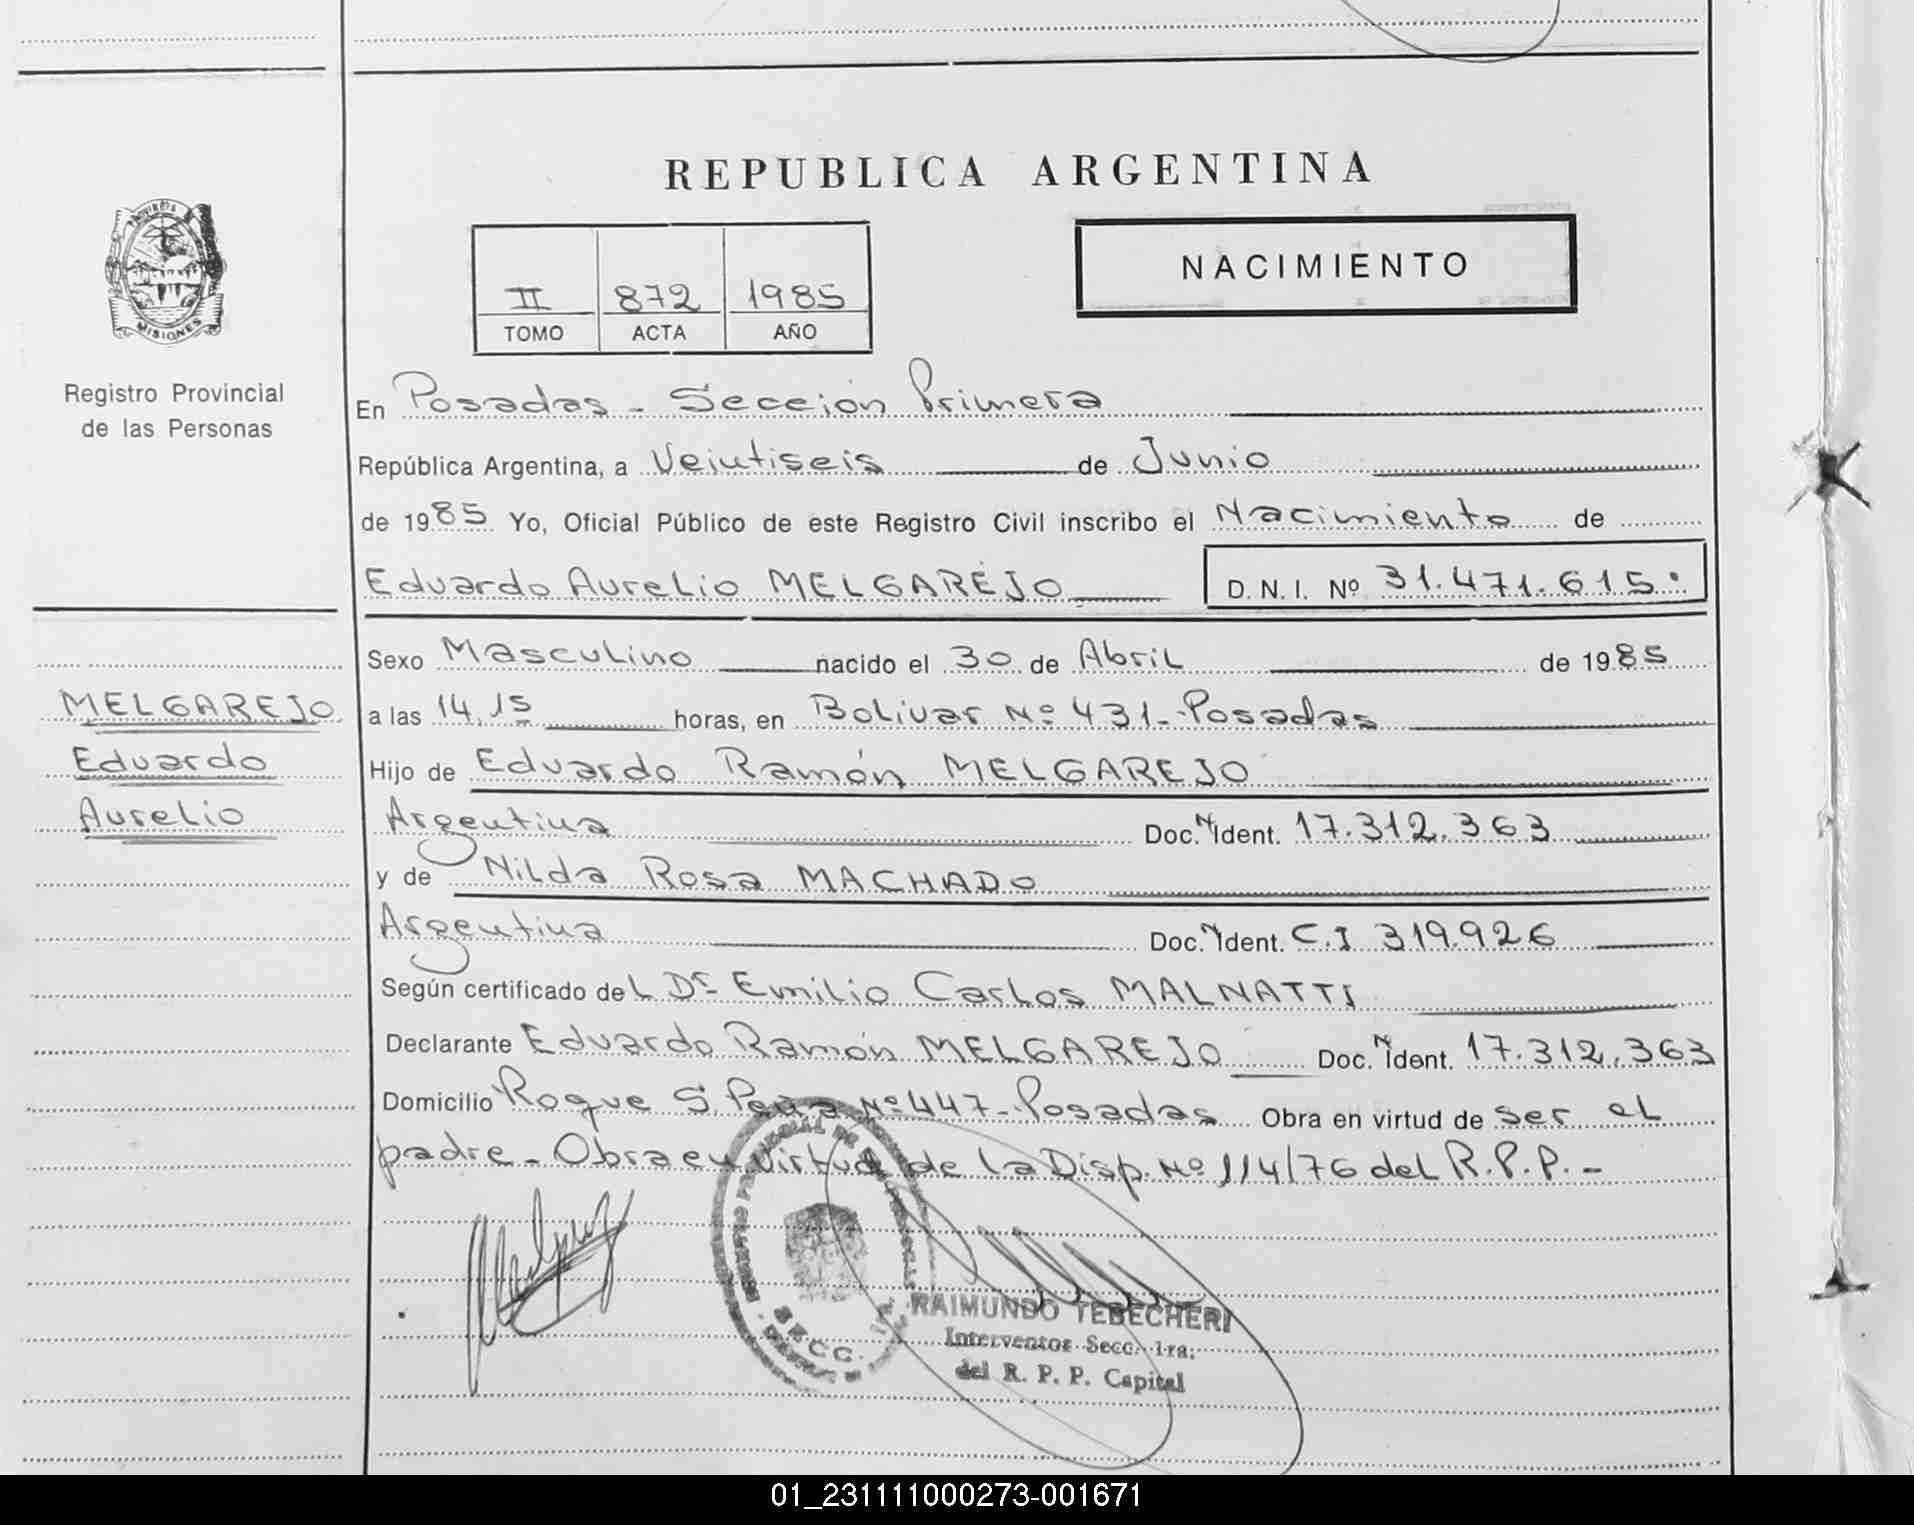 REPUBLICA ARGENTINA
PROVINCIA
MISIONES
Registro Provincial
de las Personas
II 872 1985
TOMO ACTA AÑO
NACIMIENTO
En Posadas - Sección Primera
República Argentina, a Veintiseis de Junio
de 1985 Yo, Oficial Público de este Registro Civil inscribo el Nacimiento de
Eduardo Aurelio MELGAREJO D. N. I. Nº 31.471.615.
Sexo Masculino nacido el 30 de Abril de 1985
MELGAREJO
Eduardo
Aurelio
a las 14,15 horas, en Bolivar Nº 431 - Posadas
Hijo de Eduardo Ramón MELGAREJO
Argentina Doc. N Ident. 17.312.363
y de Nilda Rosa MACHADO
Argentina Doc. N Ident. C.I 319.926
Según certificado del Dr Emilio Carlos MALNATTI
Declarante Eduardo Ramón MELGAREJO Doc. N Ident. 17.312.363
Domicilio Roque S. Peña Nº 447 - Posadas Obra en virtud de ser el
padre - Obra en virtud de la Disp. Nº 114/76 del R.P.P. -
SECC.
RAIMUNDO TEBECHERI
Interventor Secc. 1ra.
del R. P. P. Capital
01_231111000273-001671